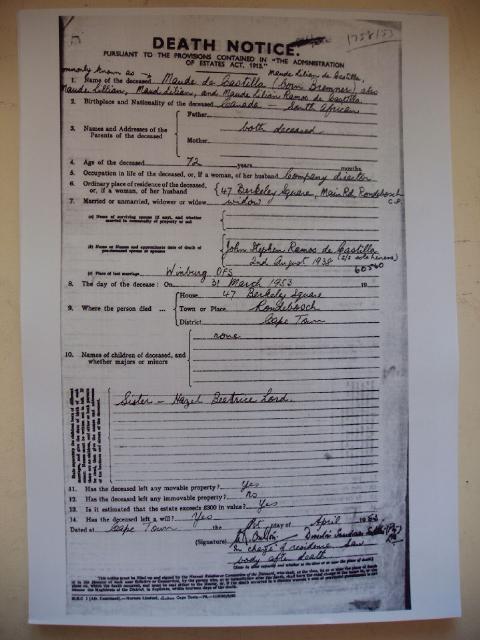 1758/53
DEATH NOTICE.
PURSUANT TO THE PROVISIONS CONTAINED IN "THE ADMINISTRATION
OF ESTATES ACT, 1913."
commonly known as Maude Lilian de Castilla,
1. Name of the deceased Maude de Castilla (born Bremner) also
Maude Lillian, Maude Lilian, and Maude Lilian Ramos de Castilla
2. Birthplace and Nationality of the deceased Canada South African
3. Names and Addresses of the Parents of the deceased
Father
both deceased
Mother
4. Age of the deceased 72 years months
5. Occupation in life of the deceased, or, if a woman, of her husband Company director
6. Ordinary place of residence of the deceased, or, if a woman, of her husband 47 Berkeley Square, Main Rd, Rondebosch
C.P.
7. Married or unmarried, widower or widow widow
(a) Name of surviving spouse (if any), and whether married in community of property or not
(b) Name or Names and approximate date of death of pre-deceased spouse or spouses
John Stephen Ramos de Castilla
2nd August 1938
60560
(c) Place of last marriage Winburg OFS
8. The day of the decease: On 31 March 1953 19
9. Where the person died
House 47 Berkeley Square
Town or Place Rondebosch
District Cape Town
none
10. Names of children of deceased, and whether majors or minors
Sister - Hazel Beatrice Lord.
11. Has the deceased left any movable property? Yes
12. Has the deceased left any immovable property? No
13. Is it estimated that the estate exceeds £300 in value? Yes
14. Has the deceased left a will? Yes
Dated at Cape Town the day of April 19
(Signature)
In charge of residence saw
body after death